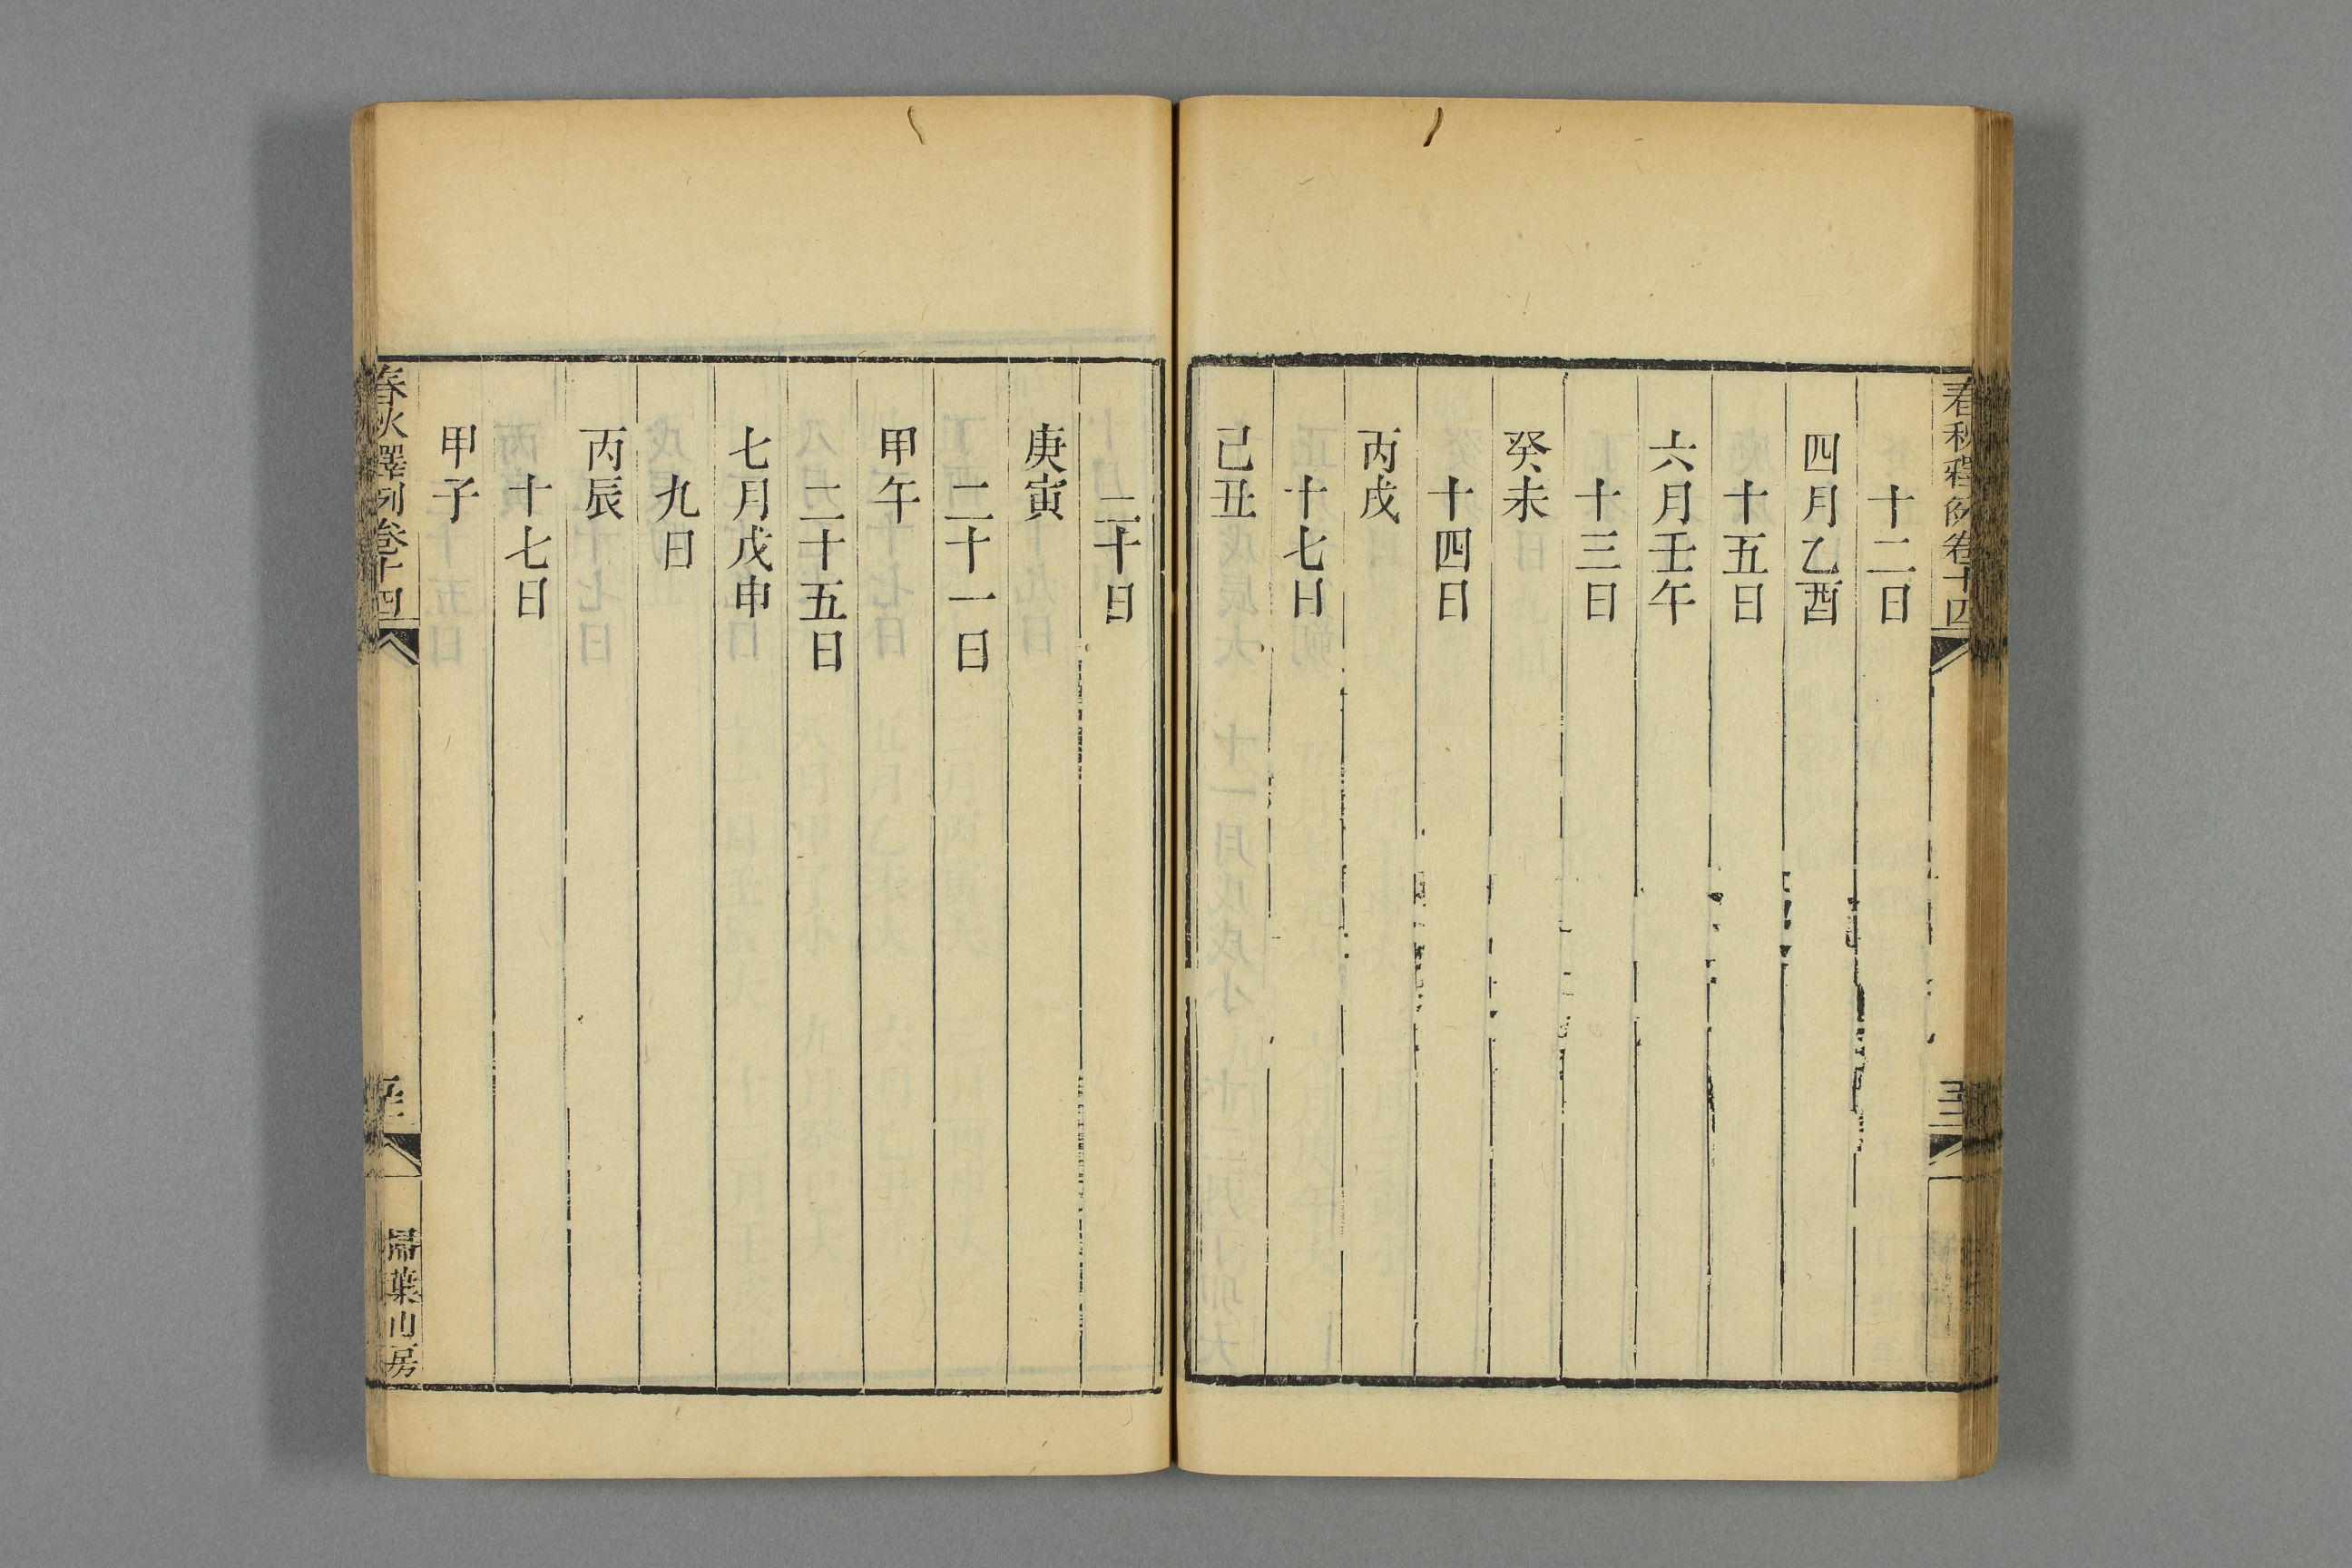 春秋釋例卷十四
十二日
四月乙酉
十五日
六月壬午
十三日
癸未
十四日
丙戌
十七日
己丑
二十日
庚寅
二十一日
甲午
二十五日
七月戊申
九日
丙辰
十七日
甲子
春秋釋例卷十四
掃葉山房